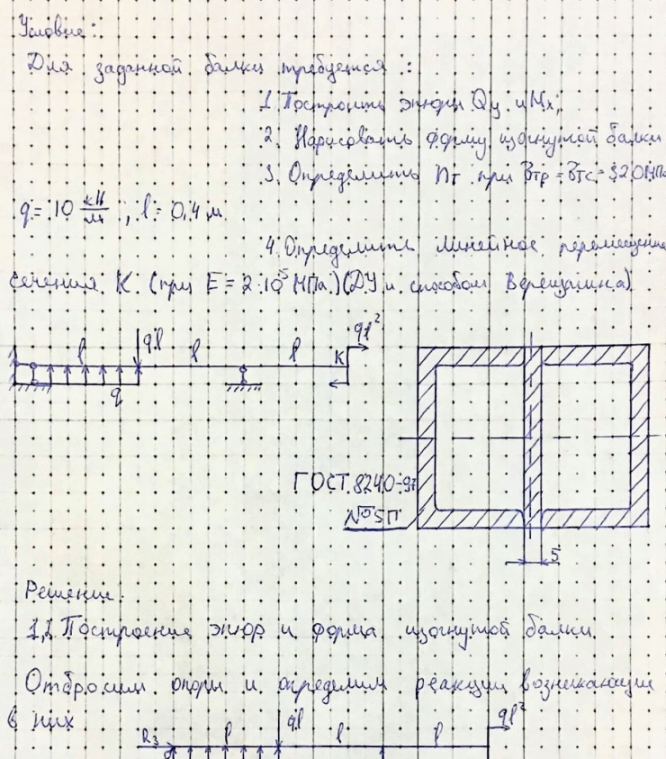 Условие:
Для заданной балки требуется:
1. Построить эпюры Qy и Mx;
2. Нарисовать форму изогнутой балки
3. Определить nт при σтр = σтс = 320 МПа
q = 10 кН/м, l = 0,4 м.
4. Определить линейное перемещение
сечения K. (при E = 2·10⁵ МПа.) (ДУ и способом Верещагина)
l
ql
l
l
K
ql²
q
ГОСТ 8240-97
№5П
5
Решение.
1,2. Построение эпюр и форма изогнутой балки.
Отбросим опоры и определим реакции возникающие
в них
R₃
l
ql
l
l
ql²